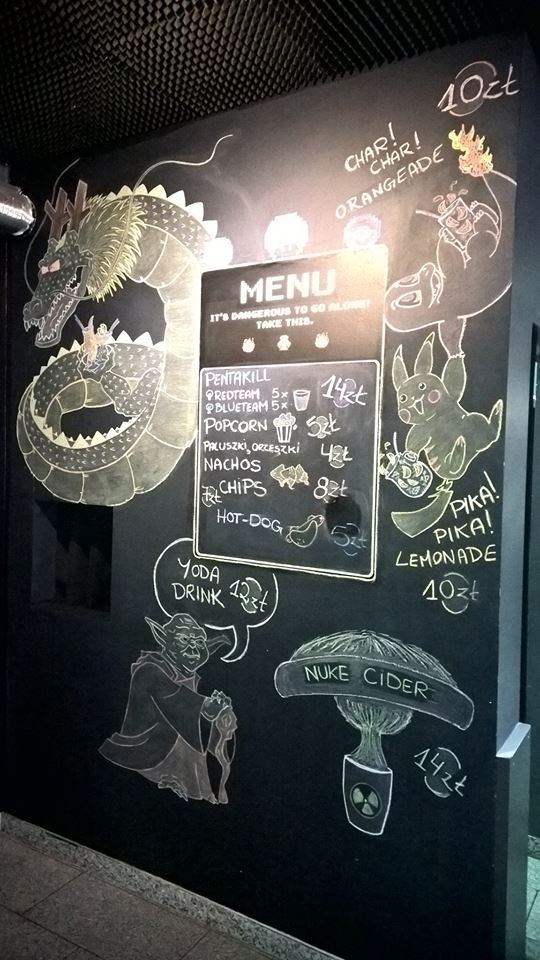 10zł
CHAR!
CHAR!
ORANGEADE
MENU
IT'S DANGEROUS TO GO ALONE!
TAKE THIS.
PENTAKILL
REDTEAM 5x
14zł
BLUETEAM 5x
POPCORN 5zł
PALUSZKI, ORZESZKI 4zł
NACHOS
7zł CHIPS 8zł
HOT-DOG 5zł
PIKA!
PIKA!
LEMONADE
10zł
YODA
DRINK 12zł
NUKE CIDER
14zł